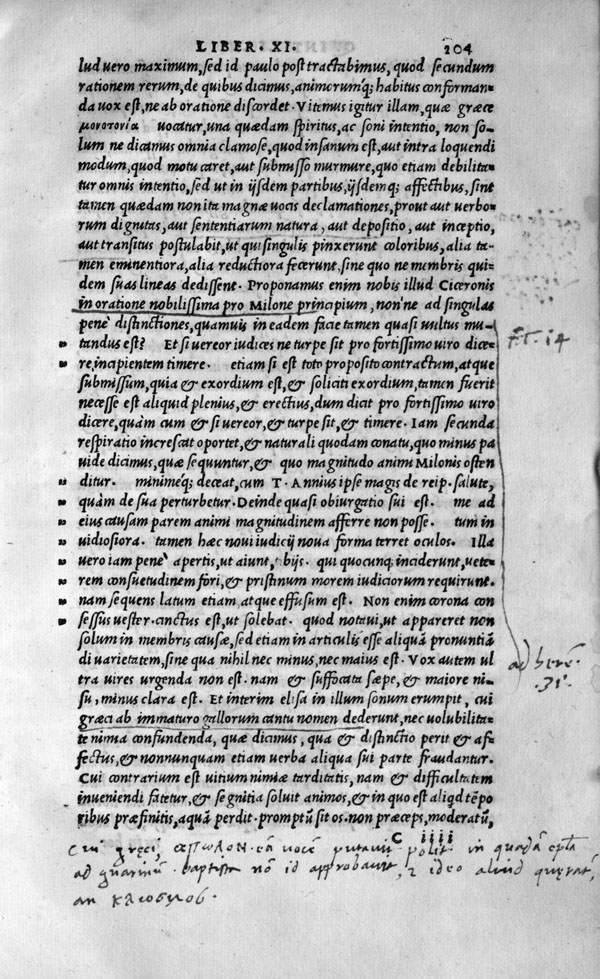 LIBER. XI. 204
lud vero maximum, sed id paulo post tractabimus, quod secundum
rationem rerum, de quibus dicimus, animorumq; habitus conforman-
da vox est, ne ab oratione discordet. Vitemus igitur illam, quæ græce
μονοτονία vocatur, una quædam spiritus, ac soni intentio, non so-
lum ne dicamus omnia clamose, quod insanum est, aut intra loquendi
modum, quod motu caret, aut submisso murmure, quo etiam debilita-
tur omnis intentio, sed ut in ijsdem partibus, ijsdemq; affectibus, sint
tamen quædam non ita magnæ vocis declamationes, prout aut verbo-
rum dignitas, aut sententiarum natura, aut depositio, aut inceptio,
aut transitus postulabit, ut qui singulis pinxerunt coloribus, alia ta-
men eminentiora, alia reductiora fecerunt, sine quo ne membris qui-
dem suas lineas dedissent. Proponamus enim nobis illud Ciceronis
in oratione nobilissima pro Milone principium, non'ne ad singulas
penè distinctiones, quamuis in eadem facie tamen quasi vultus mu-
tandus est? Et si vereor iudices ne turpe sit pro fortissimo viro dice-
re, incipientem timere. etiam si est toto proposito contractum, atque
submissum, quia & exordium est, & soliciti exordium, tamen fuerit
necesse est aliquid plenius, & erectius, dum dicit pro fortissimo viro
dicere, quàm cum & si vereor, & turpe sit, & timere. Iam secunda
respiratio increscat oportet, & naturali quodam conatu, quo minus pa
uide dicimus, quæ sequuntur, & quo magnitudo animi Milonis osten
ditur. minimeq; deceat, cum T. Annius ipse magis de reip. salute,
quàm de sua perturbetur. Deinde quasi obiurgatio sui est. me ad
eius causam parem animi magnitudinem afferre non posse. tum in
vidiosiora. tamen hæc noui iudicij noua forma terret oculos. Illa
vero iam penè apertis, ut aiunt, bijs. qui quocunq; inciderunt, vete-
rem consuetudinem fori, & pristinum morem iudiciorum requirunt.
nam sequens latum etiam atque effusum est. Non enim corona con
sessus vester cinctus est, ut solebat. quod notaui, ut appareret non
solum in membris causæ, sed etiam in articulis esse aliquã pronuntiã
di varietatem, sine qua nihil nec minus, nec maius est. Vox autem ul
tra vires urgenda non est. nam & suffocata sæpe, & maiore ni-
su, minus clara est. Et interim elisa in illum sonum erumpit, cui
græci ab immaturo gallorum cantu nomen dederunt, nec volubilita-
te nimia confundenda, quæ dicimus, qua & distinctio perit & af-
fectus, & nonnunquam etiam verba aliqua sui parte fraudantur.
Cui contrarium est vitium nimiæ tarditatis, nam & difficultatem
inueniendi fatetur, & segnitia soluit animos, & in quo est aliqd tẽpo
ribus præfinitis, aquã perdit. promptũ sit os. non præceps, moderatũ,
C iiii
ad heré.
31.
Cui gręci
vocẽ putauit polit. in quadã
ad guarinũ. baptista nõ id approbauit, ideo aliud
an